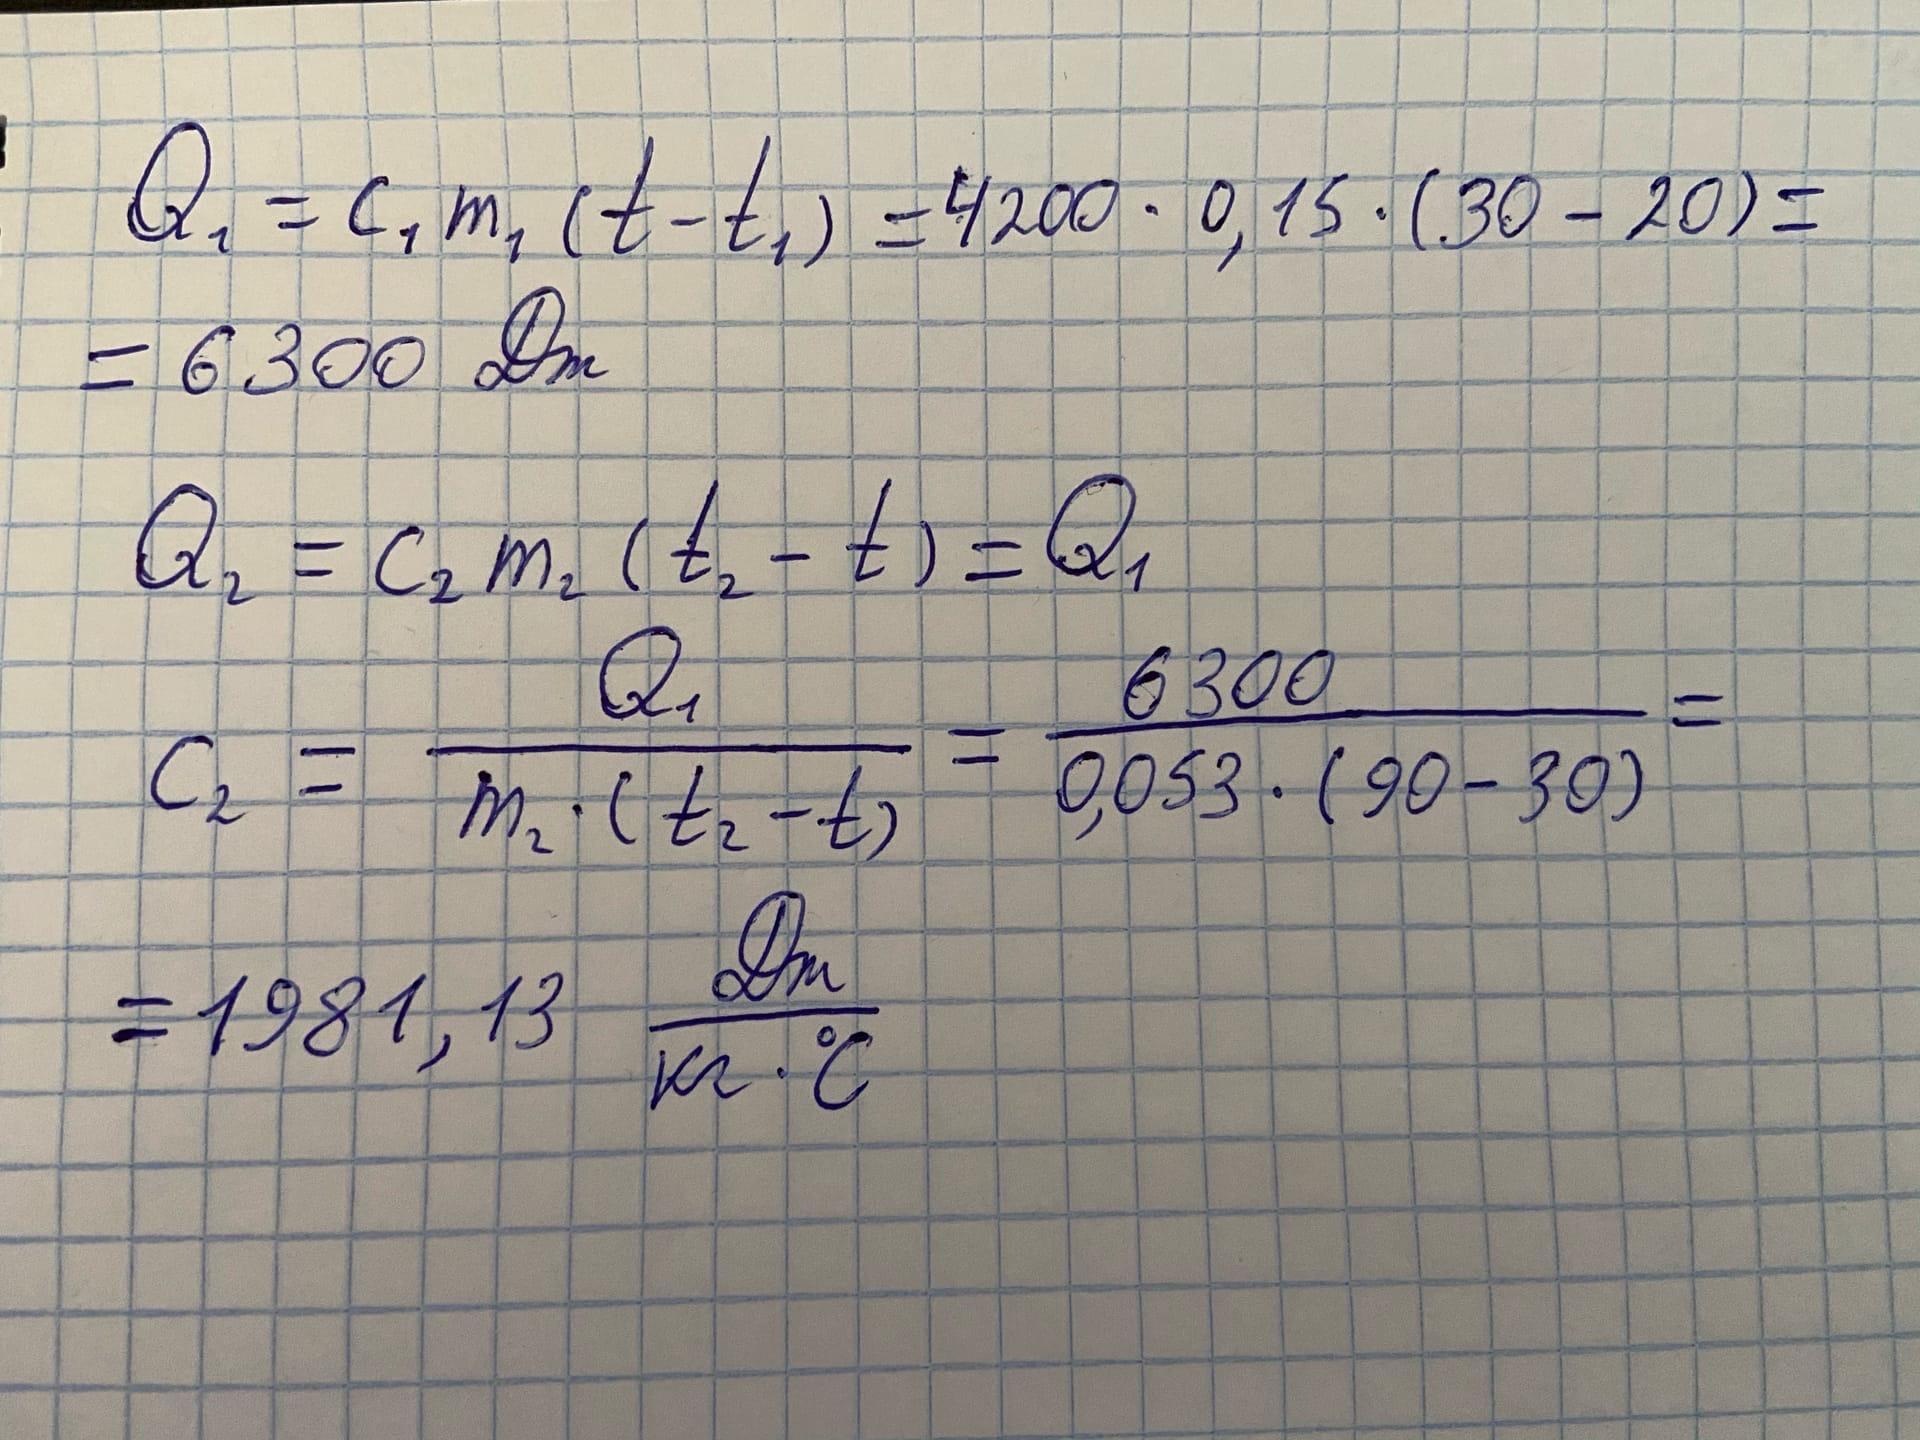 Q₁ = c₁ m₁ (t − t₁) = 4200 · 0,15 · (30 − 20) =
= 6300 Дж
Q₂ = c₂ m₂ (t₂ − t) = Q₁
c₂ = Q₁ / (m₂ · (t₂ − t)) = 6300 / (0,053 · (90 − 30)) =
= 1981,13 Дж / (кг · °C)